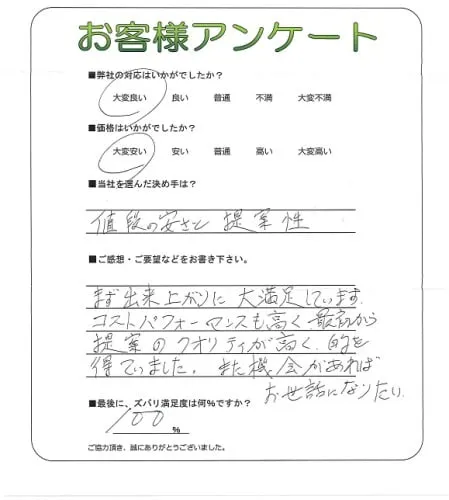 お客様アンケート
■弊社の対応はいかがでしたか？
大変良い 良い 普通 不満 大変不満
■価格はいかがでしたか？
大変安い 安い 普通 高い 大変高い
■当社を選んだ決め手は？
値段の安さと 提案性
■ご感想・ご要望などをお書き下さい。
まず出来上がりに大満足しています。
コストパフォーマンスも高く、最初から
提案のクオリティが高く、的を
得ていました。また機会があれば
お世話になりたい。
■最後に、ズバリ満足度は何％ですか？
100 %
ご協力頂き、誠にありがとうございました。